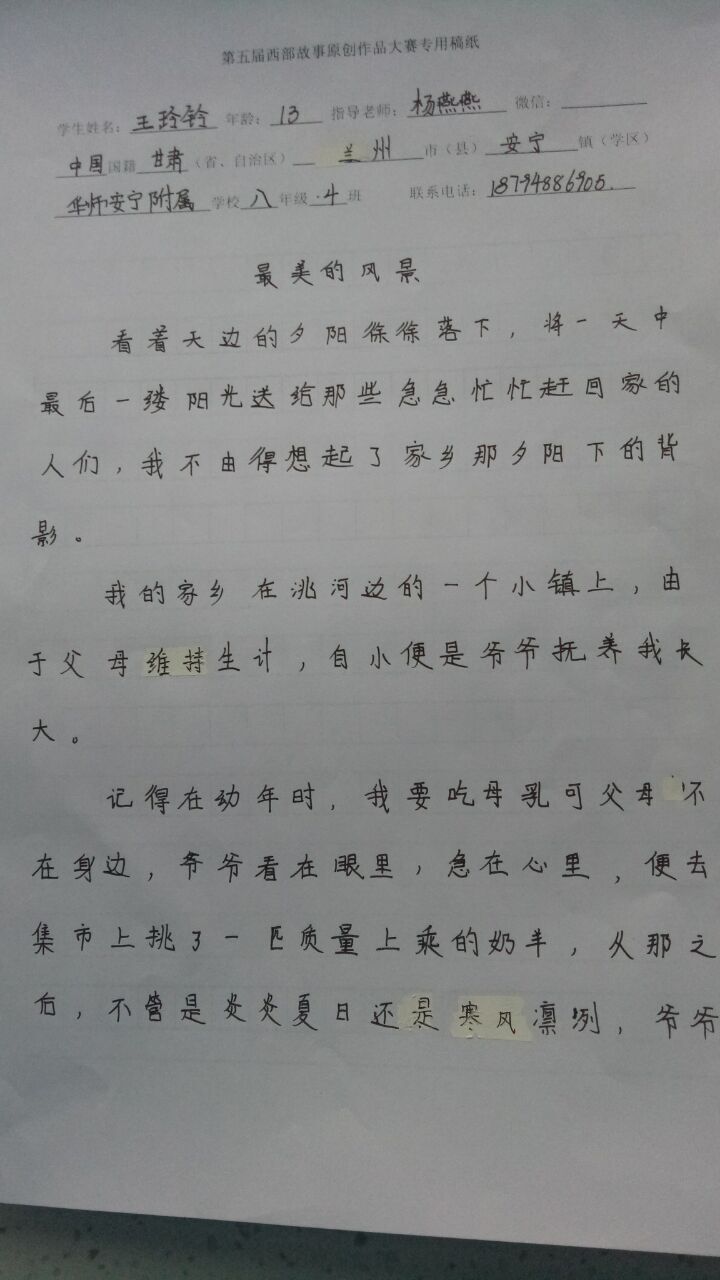 第五届西部故事原创作品大赛专用稿纸
学生姓名：王玲铃 年龄：13 指导老师：杨燕燕 微信：
中国国籍 甘肃（省、自治区） 兰州 市（县） 安宁 镇（学区）
华师安宁附属 学校 八 年级·4 班 联系电话：18794886905.
最美的风景
看着天边的夕阳徐徐落下，将一天中
最后一缕阳光送给那些急急忙忙赶回家的
人们，我不由得想起了家乡那夕阳下的背
影。
我的家乡在洮河边的一个小镇上，由
于父母维持生计，自小便是爷爷抚养我长
大。
记得在幼年时，我要吃母乳可父母不
在身边，爷爷看在眼里，急在心里，便去
集市上挑了一匹质量上乘的奶羊，从那之
后，不管是炎炎夏日还是寒风凛冽，爷爷